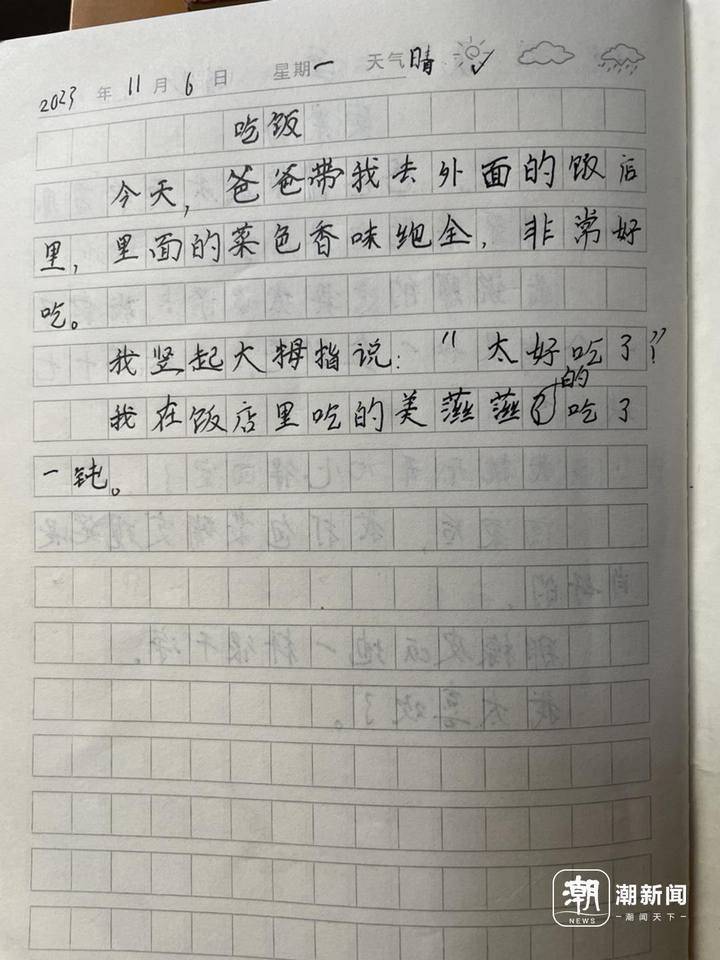 2023 年 11 月 6 日 星期一 天气晴
吃饭
今天，爸爸带我去外面的饭后
里，里面的菜色香味绝全，非常好
吃。
我竖起大拇指说：“太好吃了”！
我在饭店里吃的美燕燕的吃了
一钝。
潮 潮新闻
NEWS 潮闻天下